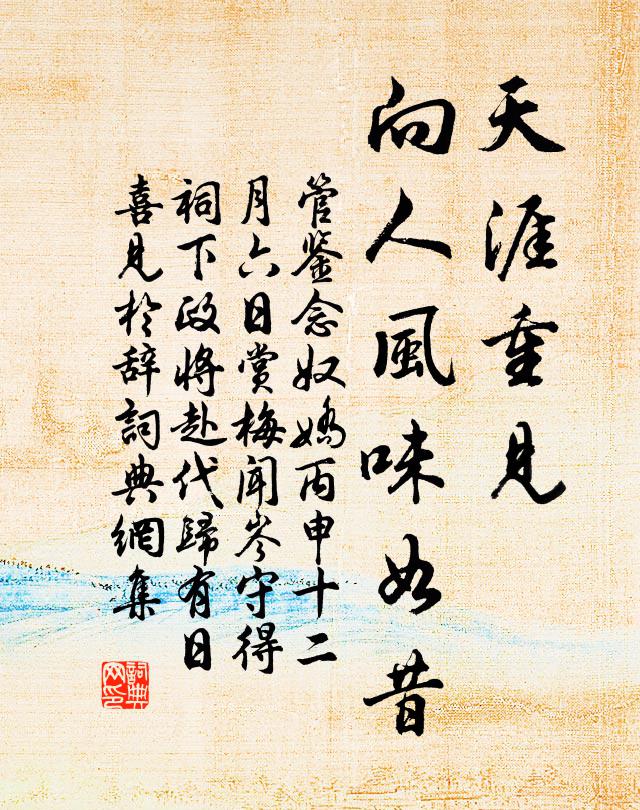 天涯重見
向人風味如昔
管鑒念奴嬌丙申十二
月六日賞梅聞岑守得
祠下政將赴代歸有日
喜見於辭詞典網集
詞典
网印